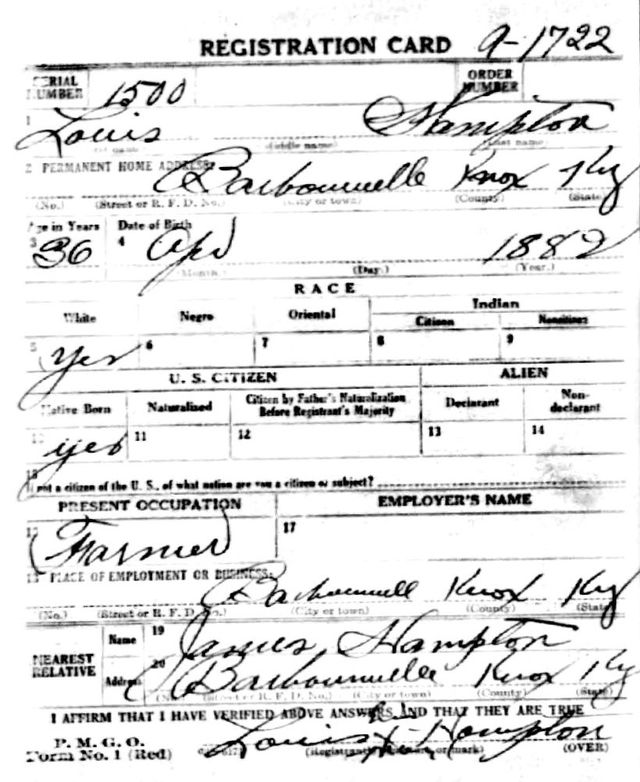 REGISTRATION CARD A-1722
SERIAL NUMBER 1500 ORDER NUMBER
1 Louis Hampton
(middle name) (Last name)
2 PERMANENT HOME ADDRESS: Barbourville Knox Ky
(No.) (Street or R. F. D. No.) (City or town) (County) (State)
Age in Years Date of Birth
3 36 4 Apr 1882
(Month.) (Day.) (Year.)
RACE
White Negro Oriental Indian
Citizen Noncitizen
5 Yes 6 7 8 9
U. S. CITIZEN ALIEN
Native Born Naturalized Citizen by Father's Naturalization Before Registrant's Majority Declarant Non-declarant
10 yes 11 12 13 14
15
not a citizen of the U. S., of what nation are you a citizen or subject?
PRESENT OCCUPATION EMPLOYER'S NAME
16 Farmer 17
18 PLACE OF EMPLOYMENT OR BUSINESS: Barbourvill Knox Ky
(No.) (Street or R. F. D. No.) (City or town) (County) (State)
NEAREST RELATIVE Name 19 James Hampton
Address 20 Barbourville Knox Ky
(No.) (Street or R. F. D. No.) (City or town) (County) (State)
I AFFIRM THAT I HAVE VERIFIED ABOVE ANSWERS AND THAT THEY ARE TRUE
P. M. G. O.
Form No. 1 (Red) Louis Hampton
(Registrant's signature or mark) (OVER)